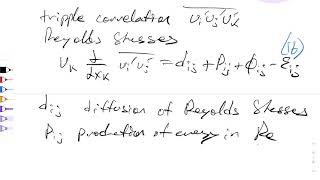 tripple correlation $\overline{u_i' u_j' u_k'}$
Reyolds Stesses
(16)
$U_k \frac{\partial}{\partial x_k} \overline{u_i' u_j'} = d_{ij} + P_{ij} + \phi_{ij} - \varepsilon_{ij}$
$d_{ij}$ diffusion of Reyolds Stesses
$P_{ij}$ production of energy in Re